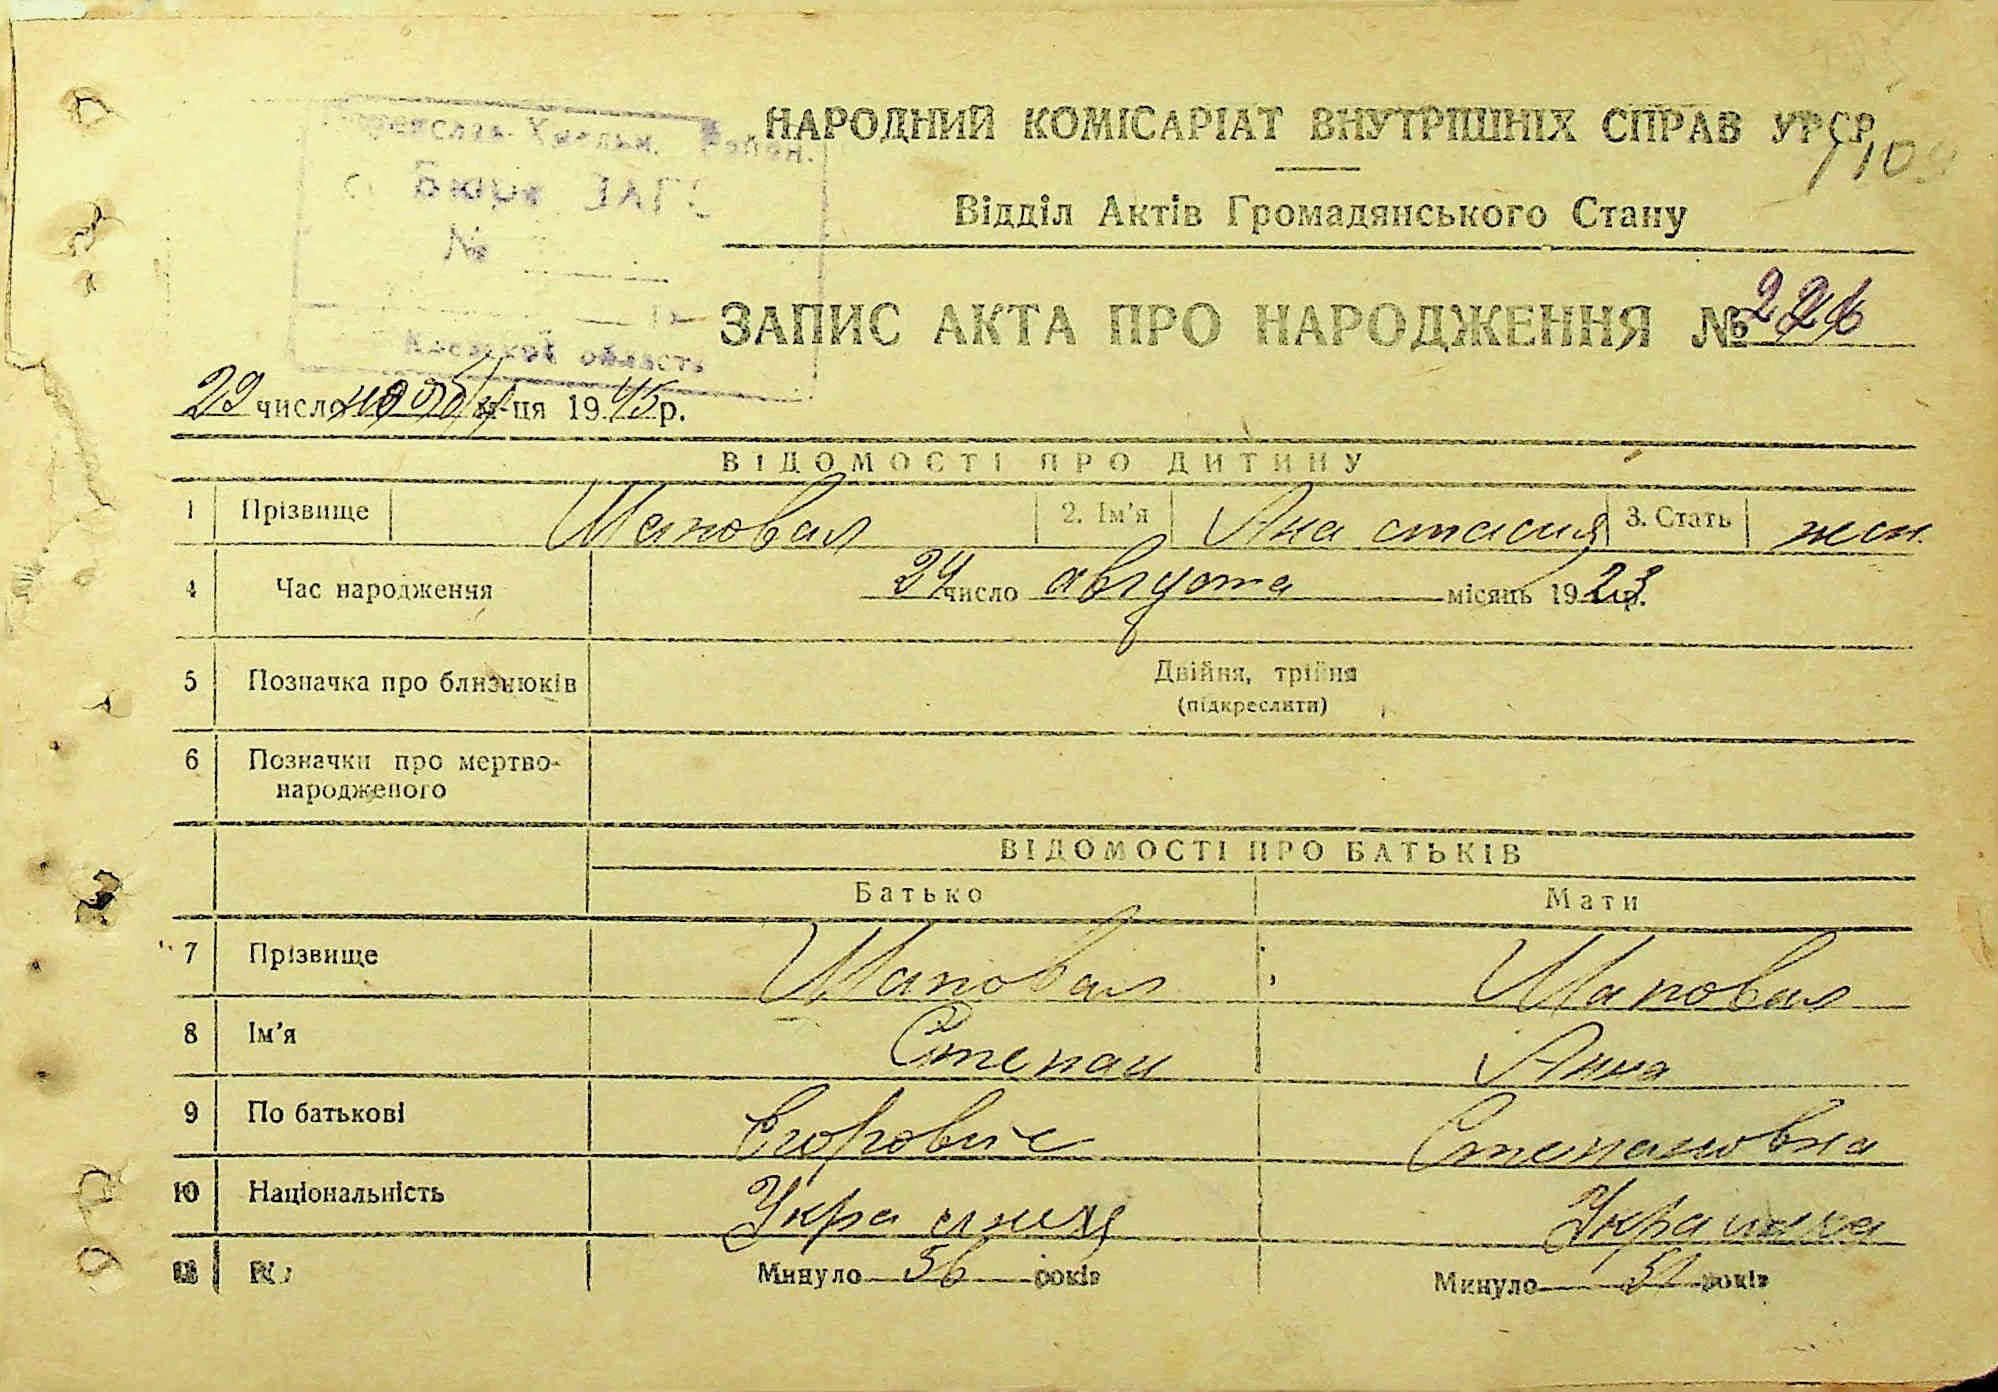 НАРОДНИЙ КОМІСАРІАТ ВНУТРІШНІХ СПРАВ УРСР
110
Бюро ЗАГС
Відділ Актів Громадянського Стану
№
ЗАПИС АКТА ПРО НАРОДЖЕННЯ №
области
29 число ноября м-ця 1945 р.
ВІДОМОСТІ ПРО ДИТИНУ
1 Прізвище Шаповал 2. Ім'я Анастасия 3. Стать жен.
4 Час народження 24 число августа місяць 1923 р.
5 Позначка про близнюків Двійня, трійня
(підкреслити)
6 Позначки про мертво-
народженого
ВІДОМОСТІ ПРО БАТЬКІВ
Батько Мати
7 Прізвище Шаповал Шаповал
8 Ім'я Степан Анна
9 По батькові Егорович Степановна
10 Національність Украинец Украинка
11 Минуло 56 років Минуло 51 років